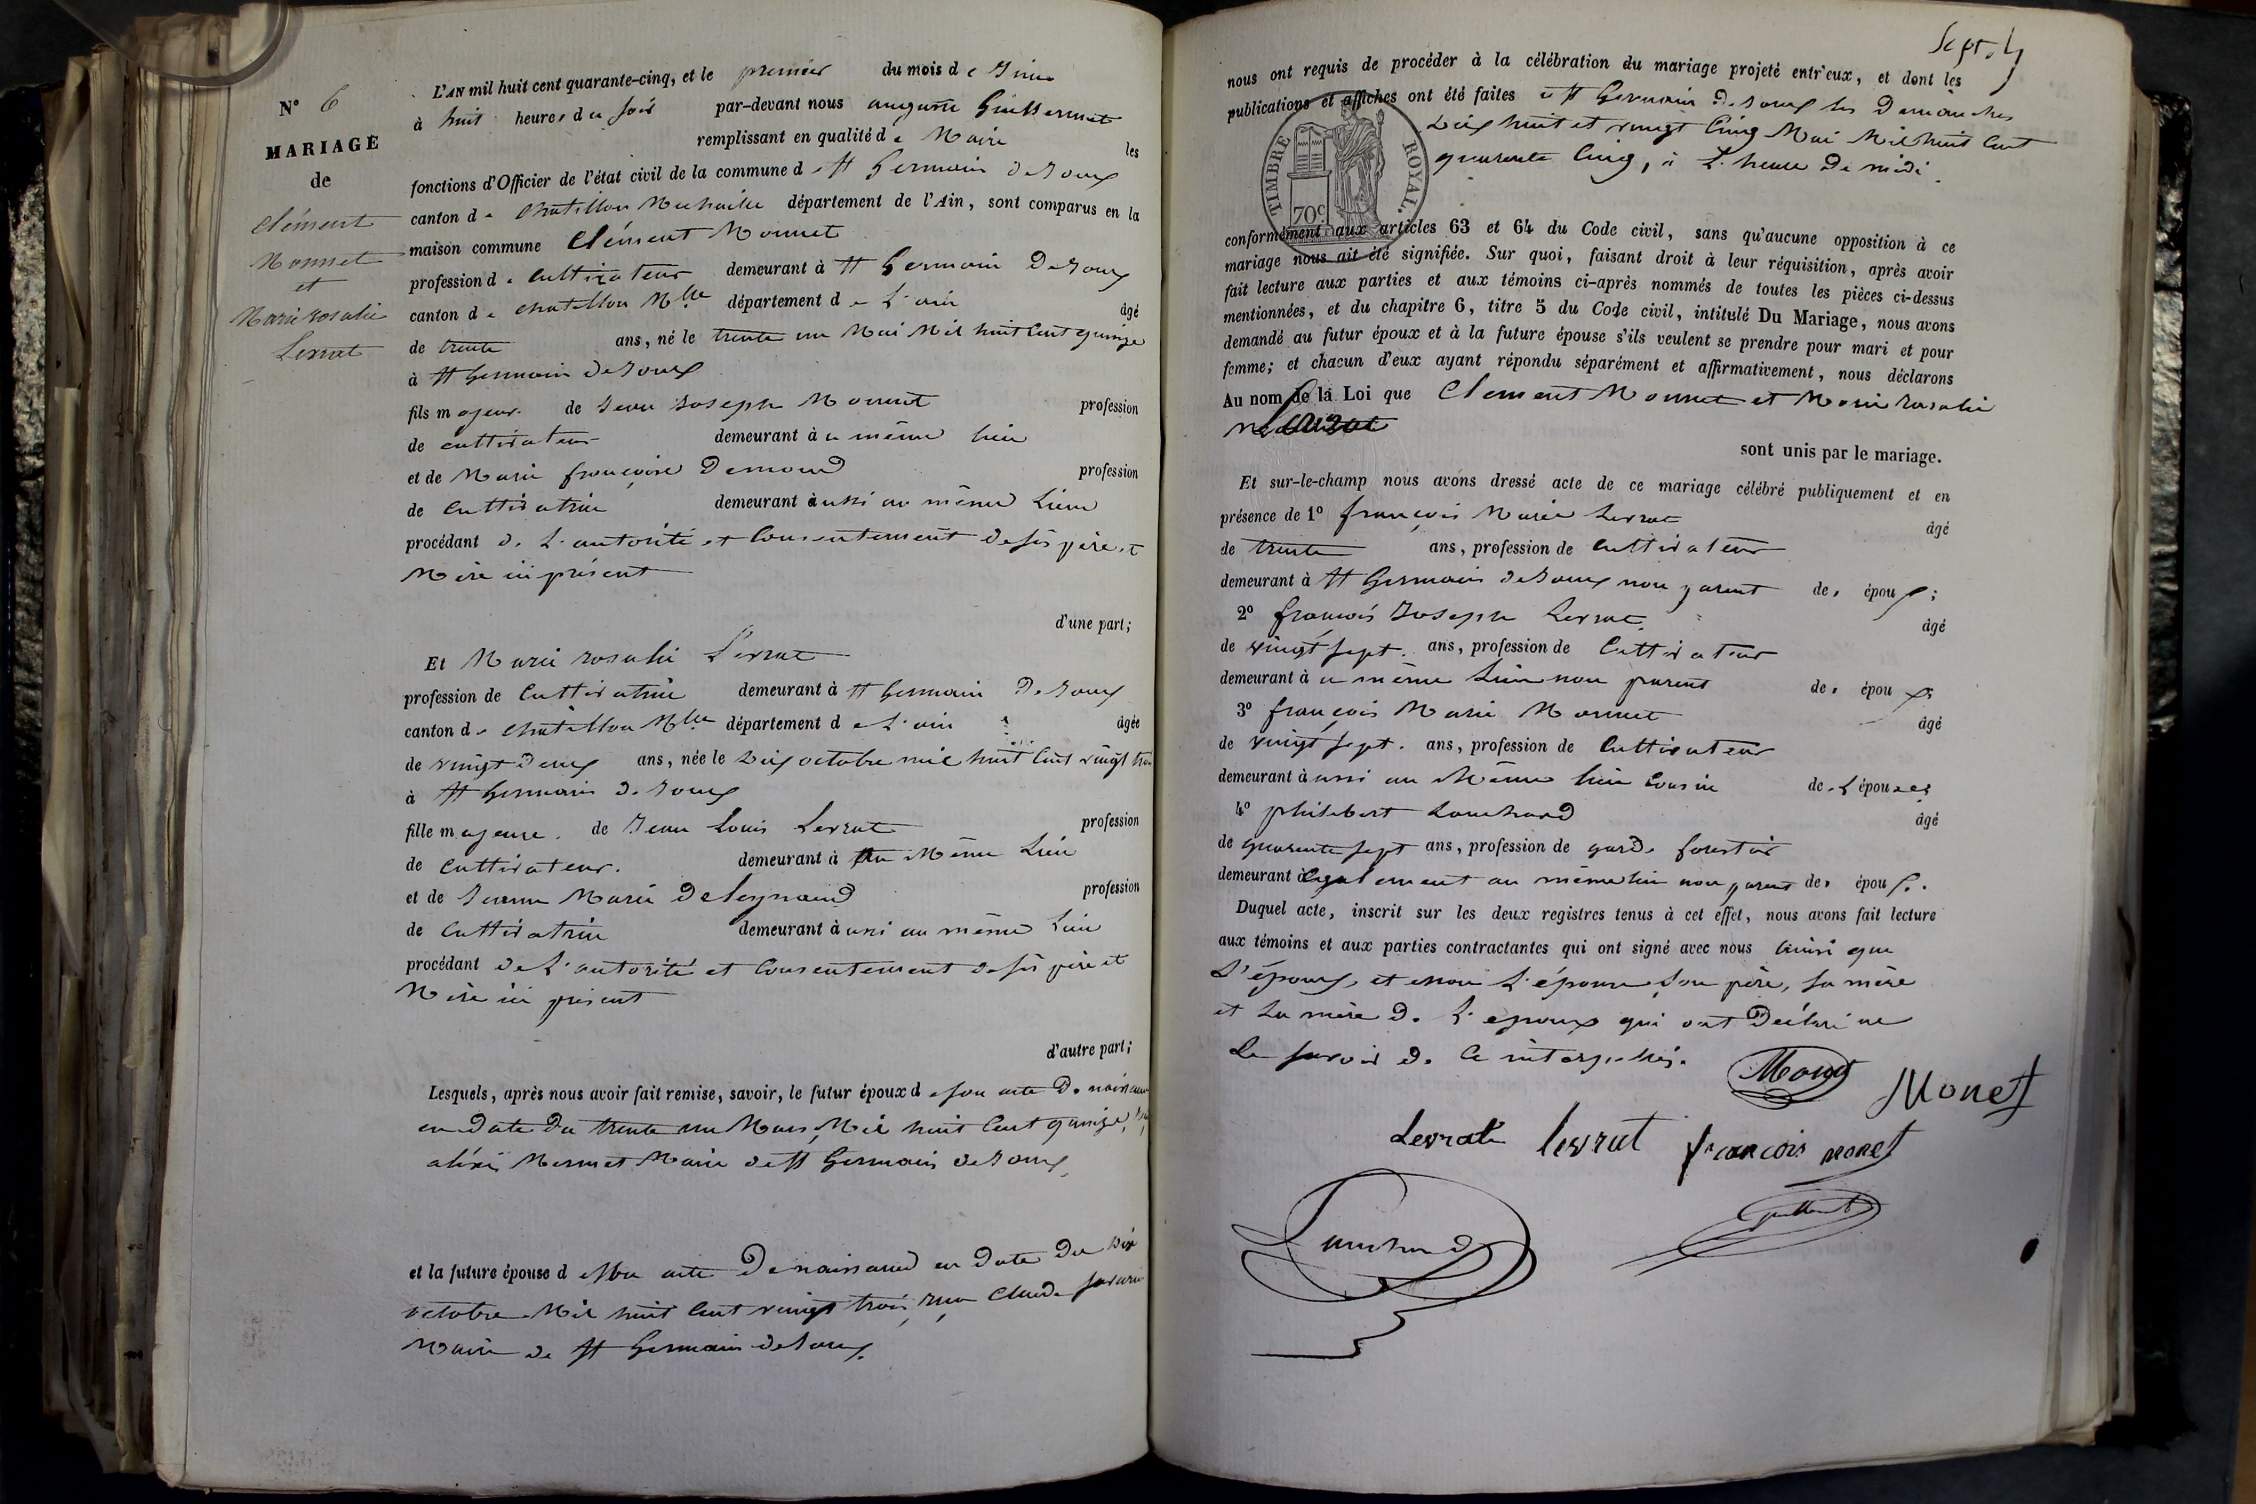 N° 6
MARIAGE
de
Clément
Monnet
et
Marie rosalie
Levrat
L'AN mil huit cent quarante-cinq, et le premier du mois de Juin
à huit heures du soir par-devant nous auguste Guillermet
remplissant en qualité de Maire les
fonctions d'Officier de l'état civil de la commune de St Germain de Joux
canton de Chatillon Michaille département de l'Ain, sont comparus en la
maison commune Clément Monnet
profession de Cultivateur demeurant à St Germain De Joux
canton de chatillon Mlle département de L'ain âgé
de trente ans, né le trente un Mai Mil huit Cent quinze
à St Germain De Joux
fils majeur de Jean Joseph Monnet profession
de cultivateur demeurant à ce même lieu
et de Marie françoise Demond profession
de Cultivatrice demeurant aussi au même Lieu
procédant de L'autorité et Consentement de ses père et
Mère ici présent
d'une part;
Et Marie rosalie Levrat
profession de Cultivatrice demeurant à St Germain De Joux
canton de chatillon Mlle département de L'ain âgée
de vingt Deux ans, née le Dix octobre mil huit Cent vingt trois
à St Germain de Joux
fille majeure de Jean Louis Levrat profession
de Cultivateur. demeurant à au Même Lieu
et de Jeanne Marie Deleynaud profession
de Cultivatrice demeurant à ussi au même Lieu
procédant de L'autorité et Consentement de ses père et
Mère ici présent
d'autre part;
Lesquels, après nous avoir fait remise, savoir, le futur époux de son acte De naissance
en Date Du trente un Mars Mil huit Cent quinze,
Mermet Maire de St Germain de Joux,
et la future épouse de son acte De naissance en Date Du Dix
octobre Mil huit Cent vingt trois, Claude
Maire de St Germain de Joux.
Sept. 7
nous ont requis de procéder à la célébration du mariage projeté entr'eux, et dont les
publications et affiches ont été faites à St Germain De Joux les Dimanches
Dix huit et vingt Cinq Mai Mil huit Cent
quarante Cinq, à L'heure De midi.
TIMBRE ROYAL.
70c
conformément aux articles 63 et 64 du Code civil, sans qu'aucune opposition à ce
mariage nous ait été signifiée. Sur quoi, faisant droit à leur réquisition, après avoir
fait lecture aux parties et aux témoins ci-après nommés de toutes les pièces ci-dessus
mentionnées, et du chapitre 6, titre 5 du Code civil, intitulé Du Mariage, nous avons
demandé au futur époux et à la future épouse s'ils veulent se prendre pour mari et pour
femme; et chacun d'eux ayant répondu séparément et affirmativement, nous déclarons
Au nom de la Loi que Clement Monnet et Marie rosalie
Levrat
sont unis par le mariage.
Et sur-le-champ nous avons dressé acte de ce mariage célébré publiquement et en
présence de 1° françois Marie Levrat âgé
de trente ans, profession de Cultivateur
demeurant à St Germain de Joux non parent des époux;
2° françois Joseph Levrat âgé
de vingt sept. ans, profession de Cultivateur
demeurant à ce même Lieu non parent des époux;
3° françois Marie Monnet âgé
de vingt sept. ans, profession de Cultivateur
demeurant à ussi au Même lieu Cousin de L'époux;
4° philibert Louchard âgé
de quarante sept ans, profession de garde forestier
demeurant à également au même lieu non parent des époux.
Duquel acte, inscrit sur les deux registres tenus à cet effet, nous avons fait lecture
aux témoins et aux parties contractantes qui ont signé avec nous Ainsi que
L'époux, et non L'épouse, son père, sa mère
et La mère de L'epoux qui ont Déclaré ne
Le savoir de Ce interpellés.
Monet
Monet
Levrat levrat francois monet